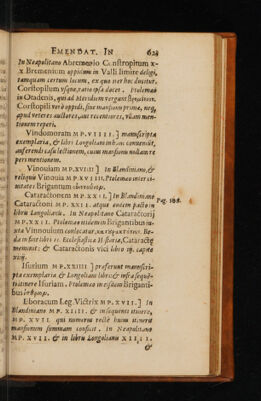 EMENDAT. IN 623
In Neapolitano Abremenio Constroptum x-
x Bremenium appictum in Valli limite deligi,
tamquam certum locum, ex quo per hæc ducitur.
Corstopilum vsque, ratio ipsa docet. Ptolemæo
in Otadenis, qui ad Meridiem vergunt
Corstopili verò oppidi, siue mansionis primæ, neq́;
apud veteres auctores, aut recentiores, vllam men-
tionem reperi.
Vindomoram M P. VIIII. ] manuscripta
exemplaria, & libri Longoliani inibi conueniunt,
auferendi casus lectionem, cuius mansionis nullam re
peri mentionem.
Vinouiam M P. XVIIII ] In Blandiniano, &
reliquis Vinouia M P. XVIIII. Ptolemæo inter ci-
uitates Brigantum
Cataractonem M P. XXII. ] In Blandiniano
Cataractoni M P. XXII. atque eodem pacto in
libris Longolianis. In Neapolitano Cataractorij
M P. XXII. In Ptolemæo itidem in Brigantibus in-
uta Vinnouium conlocatur, Be-
da in suis libris Ecclesiasticæ Historiæ, Cataractę
mementc: & Cataractonis vici libro iij. capite
xiiij.
Isurium M P. XXIIII ] preferunt manuscri-
pta exemplaria & Longoliani libri: & infra seque-
ti itinere Isuriam. Ptolemæo in eisdem Briganti-
bus
Eboracum Leg. Victrix M P. XVII. ] In
Blandiniano M P. XIIII. & in sequenti itinere,
M P. XVII qui numerus rectè huius itineris
mansionum summam conficit. In Neapolitano
M P. XVII. & in libris Longolianis XIIII.
&
Pag. 108.